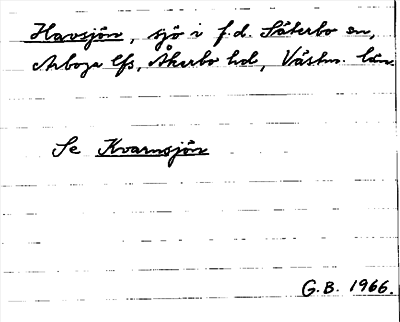 Havsjön, sjö i f.d. Säterbo sn,
Arboga lfs, Åkerbo hd, Västm. län
Se Kvarnsjön
G.B. 1966.